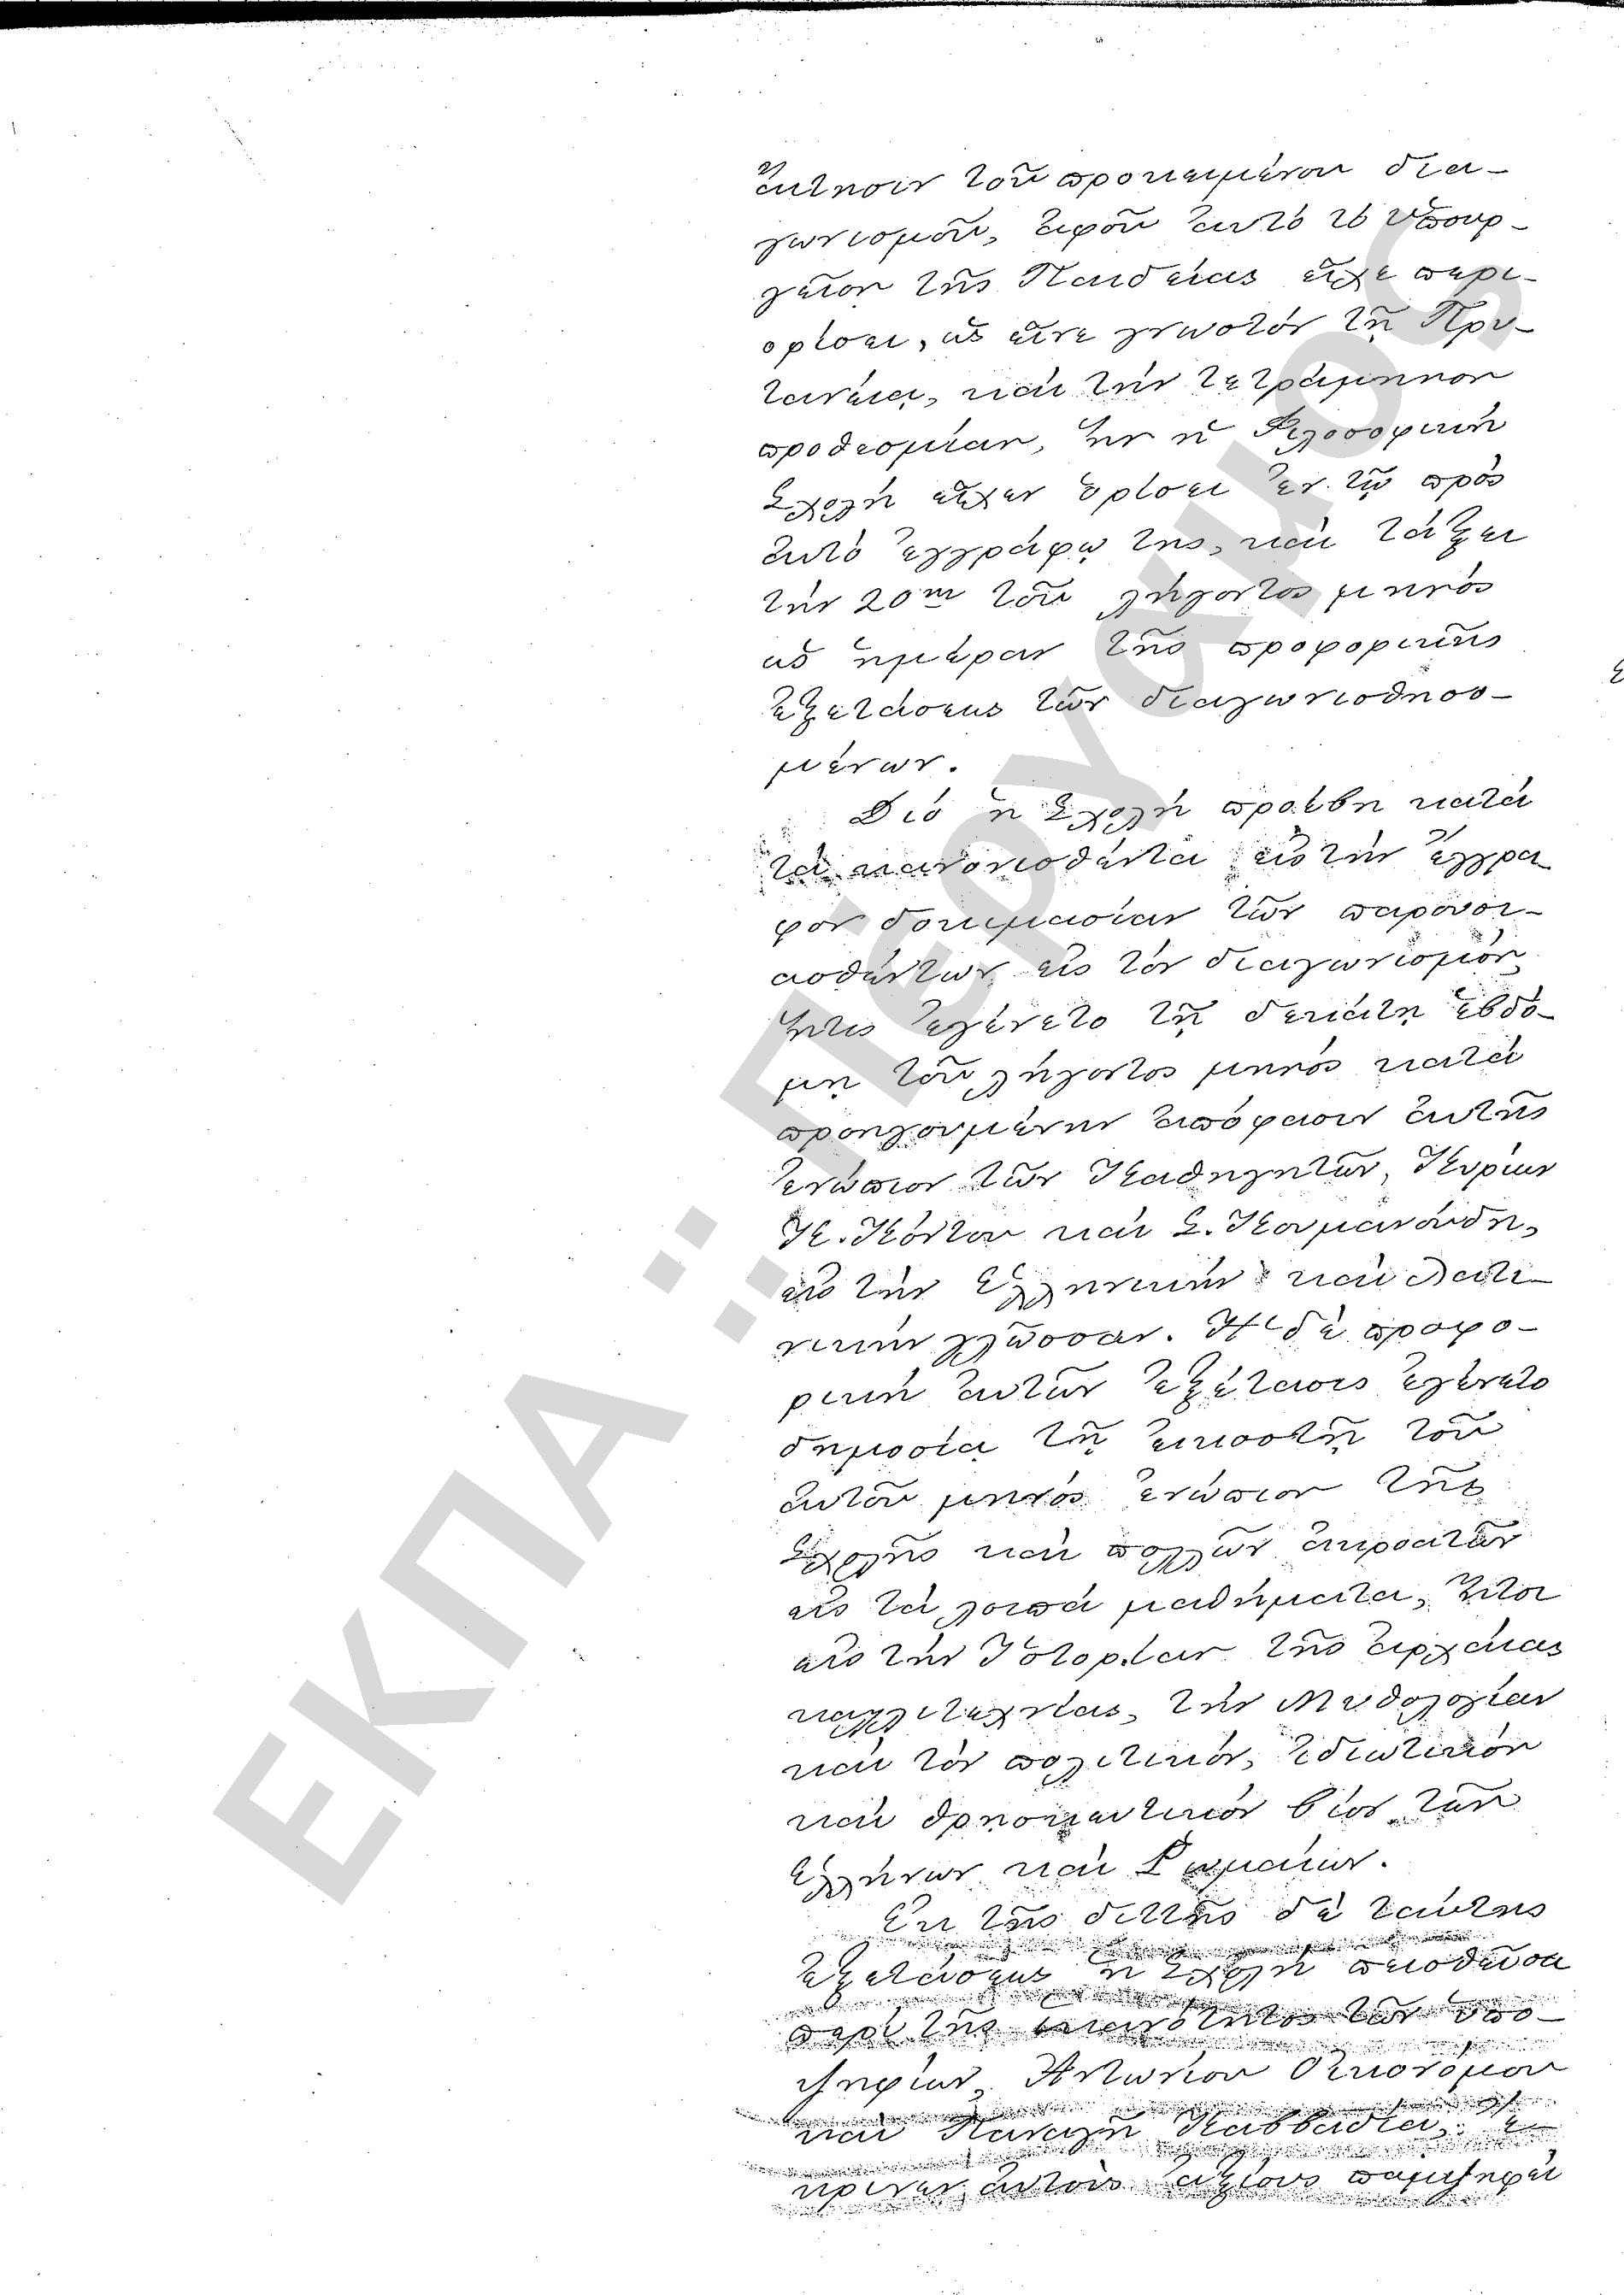 αίτησιν τοῦ προκειμένου δια-
γωνισμοῦ, ἀφοῦ αὐτὸ τὸ Ὑπουρ-
γεῖον τῆς Παιδείας εἶχε περι-
ορίσει, ὡς εἶνε γνωστὸν τῇ Πρυ-
τανείᾳ, καὶ τὴν τετράμηνον
προθεσμίαν, ἣν ἡ Φιλοσοφικὴ
Σχολὴ εἶχεν ὁρίσει ἐν τῷ πρὸς
αὐτὸ ἐγγράφῳ της, καὶ τάξει
τὴν 20ην τοῦ λήγοντος μηνὸς
ὡς ἡμέραν τῆς προφορικῆς
ἐξετάσεως τῶν διαγωνισθησο-
μένων.
Διὸ ἡ Σχολὴ προέβη κατὰ
τὰ κανονισθέντα εἰς τὴν ἔγγρα
φον δοκιμασίαν τῶν παρουσι-
ασθέντων εἰς τὸν διαγωνισμὸν
ἥτις ἐγένετο τῇ δεκάτῃ ἑβδό-
μῃ τοῦ λήγοντος μηνὸς κατὰ
προηγουμένην ἀπόφασιν αὐτῆς
ἐνώπιον τῶν Καθηγητῶν, Κυρίων
Κ. Κόντου καὶ Σ. Κουμανούδη,
εἰς τὴν Ἑλληνικὴν καὶ Λατι-
νικὴν γλῶσσαν. Ἡ δὲ προφο-
ρικὴ αὐτῶν ἐξέτασις ἐγένετο
δημοσίᾳ τῇ εἰκοστῇ τοῦ
αὐτοῦ μηνὸς ἐνώπιον τῆς
Σχολῆς καὶ πολλῶν ἀκροατῶν
εἰς τὰ λοιπὰ μαθήματα, ἤτοι
εἰς τὴν Ἱστορίαν τῆς ἀρχαίας
καλλιτεχνίας, τὴν Μυθολογίαν
καὶ τὸν πολιτικόν, ἰδιωτικὸν
καὶ θρησκευτικὸν βίον τῶν
Ἑλλήνων καὶ Ῥωμαίων.
Ἐκ τῆς διττῆς δὲ ταύτης
ἐξετάσεως ἡ Σχολὴ πεισθεῖσα
περὶ τῆς ἱκανότητος τῶν ὑπο-
ψηφίων, Ἀντωνίου Οἰκονόμου
καὶ Παναγῆ Καββαδία, ἔ-
κρινεν αὐτοὺς ἀξίους παμψηφεὶ